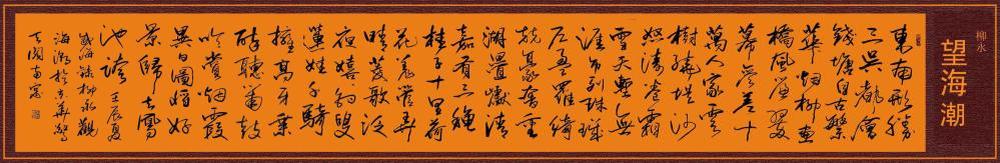 柳永
望海潮
東南形勝
三吳都會
錢塘自古繁
華烟柳畫
橋風簾翠
幕參差十
萬人家雲
樹繞堤沙
怒濤卷霜
雪天塹無
涯市列珠璣
戶盈羅綺
競豪奢重
湖疊巘清
嘉有三秋
桂子十里荷
花羌管弄
晴菱歌泛
夜嬉嬉釣叟
蓮娃千騎
擁高牙乘
醉聽簫鼓
吟賞烟霞
異日圖將好
景歸去鳳
池誇 壬辰夏
錄柳永
海潮於京華